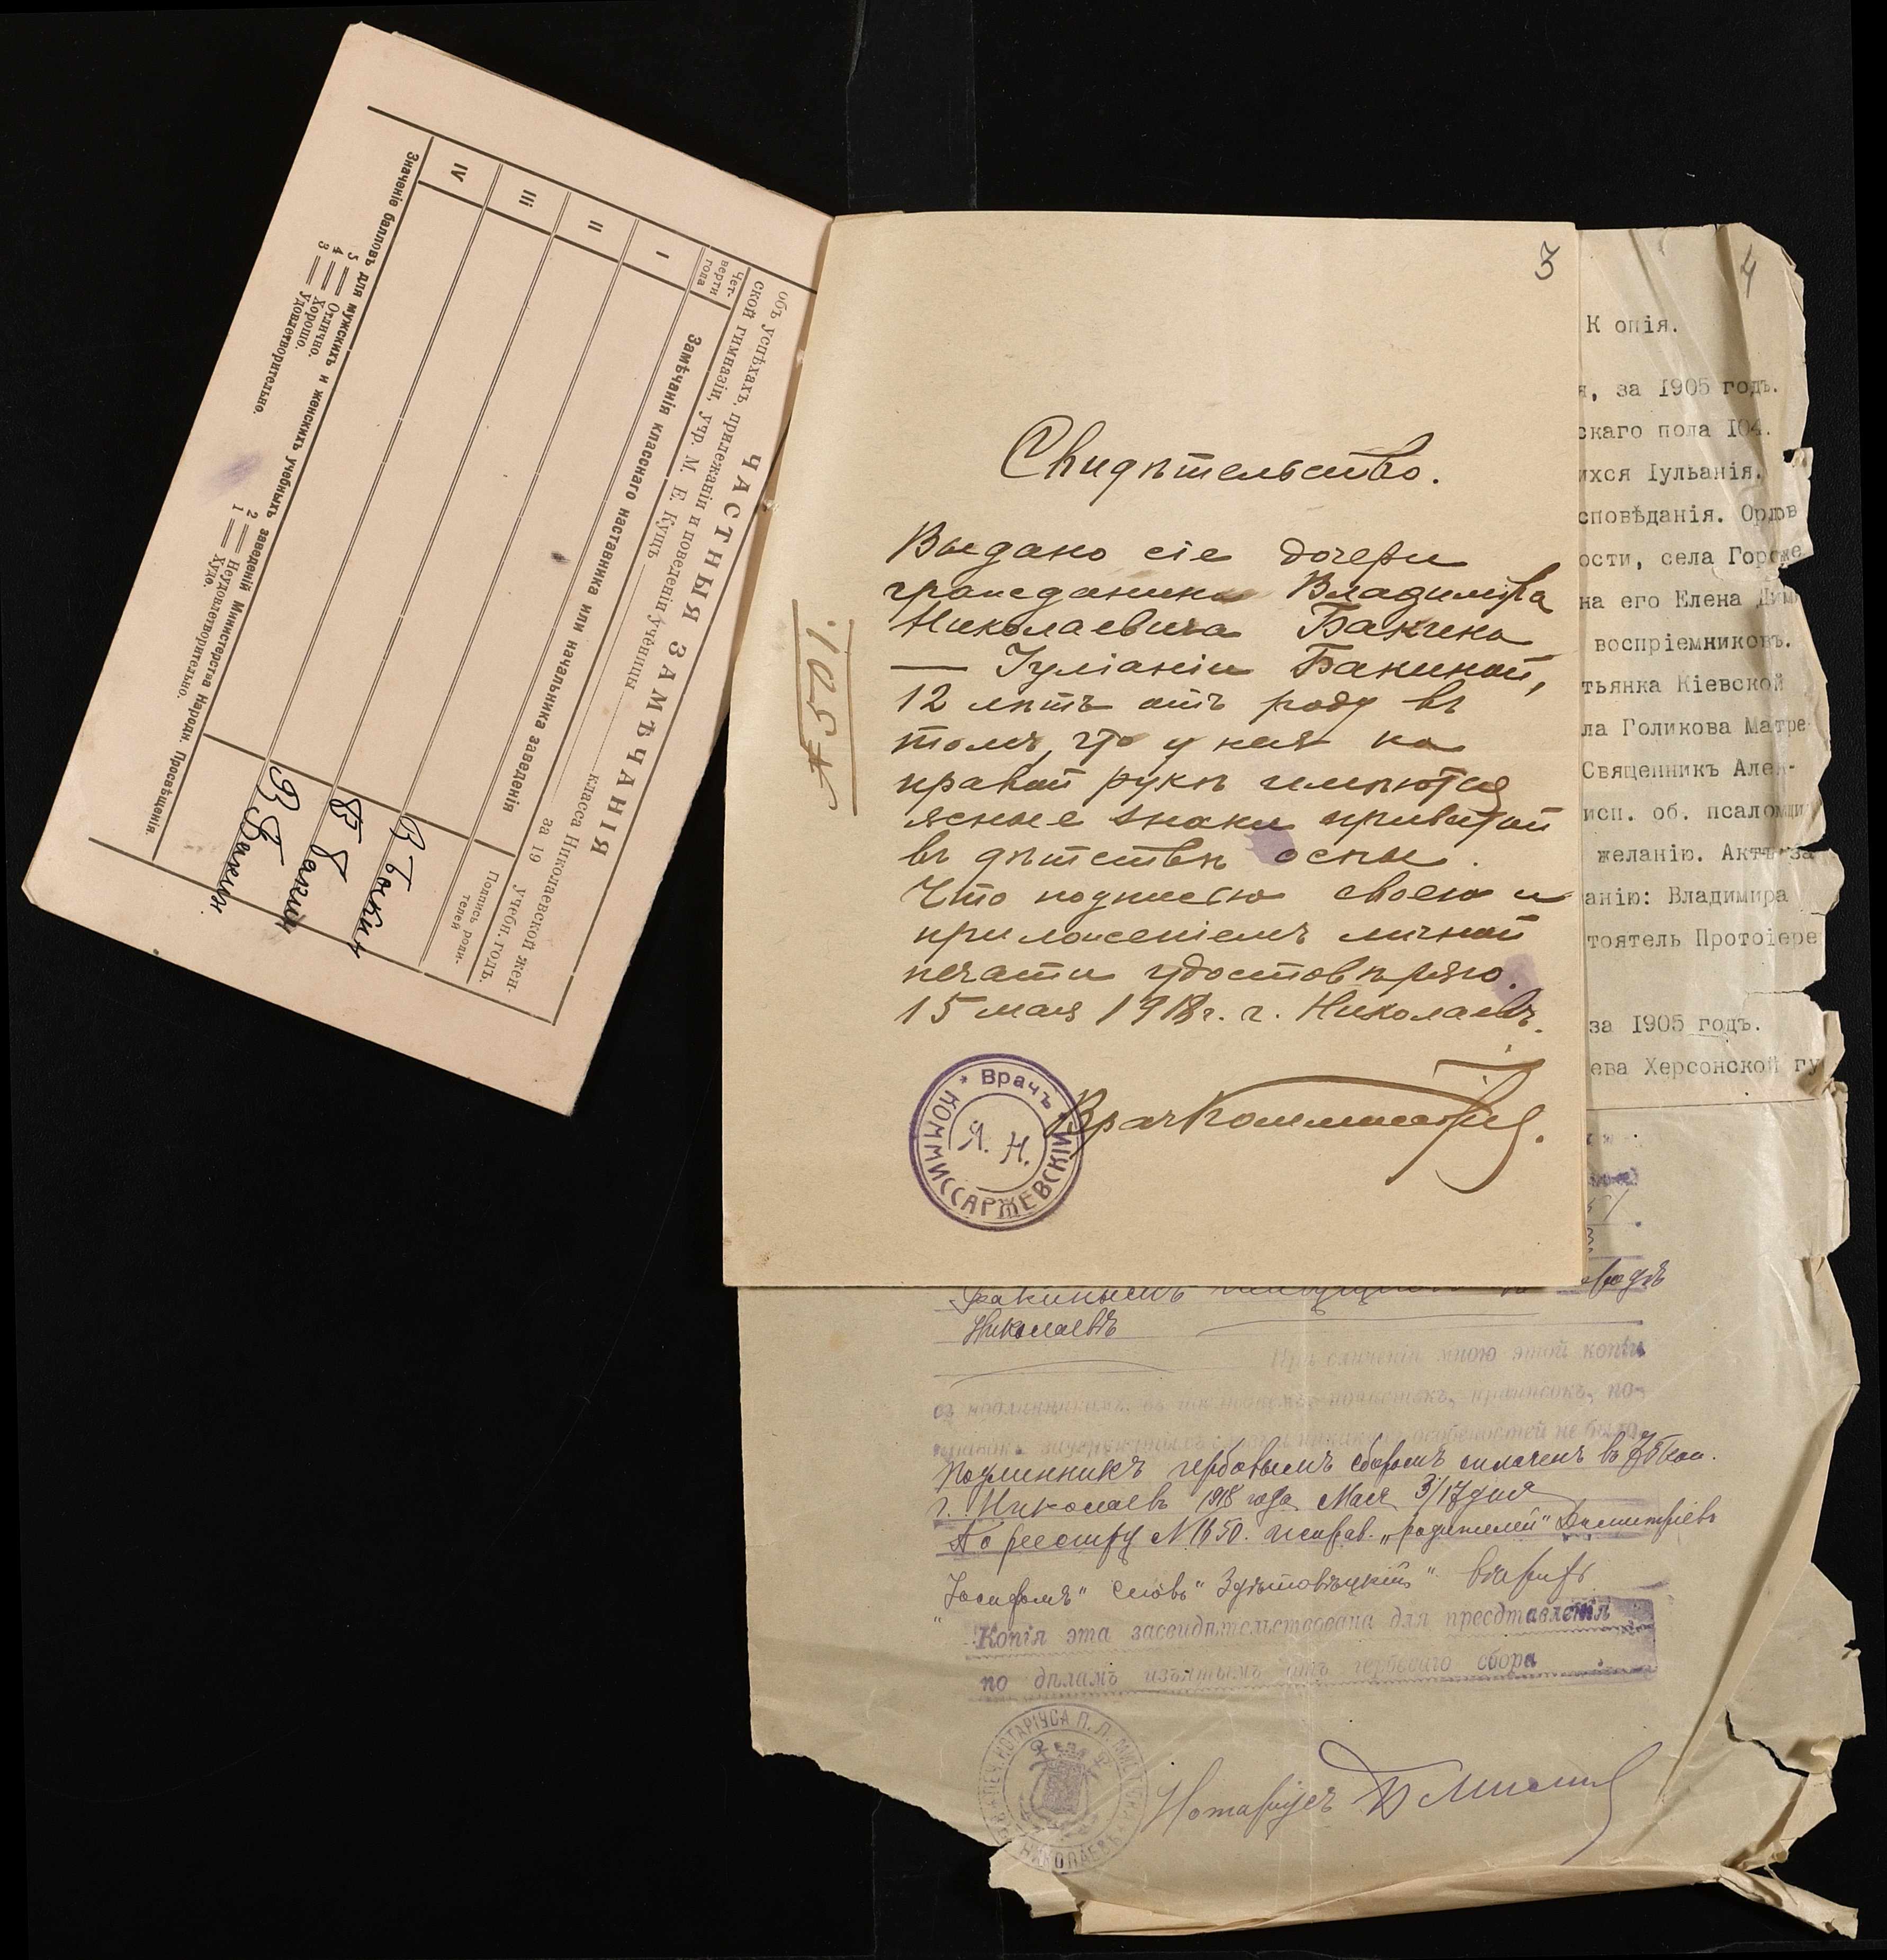 ЧАСТНЫЯ ЗАМѢЧАНІЯ
объ успѣхахъ, прилежаніи и поведеніи ученицы класса Николаевской жен-
ской гимназіи, учр. М. Е. Кущъ за 19 учебн. годъ.
Чет-
верти
года
Замѣчанія класснаго наставника или начальника заведенія
Подпись роди-
телей
I
II
III
IV
В Бакин
В Бакин
В Бакин
Значеніе балловъ для мужскихъ и женскихъ учебныхъ заведеній Министерства Народн. Просвѣщенія.
5 — Отлично.
4 — Хорошо.
3 — Удовлетворительно.
2 — Неудовлетворительно.
1 — Худо.
3
№ 501.
Свидѣтельство.
Выдано сіе дочери
гражданина Владиміра
Николаевича Бакина
— Іуліаніи Бакиной,
12 лѣтъ отъ роду въ
томъ, что у нея на
правой рукѣ имѣются
ясные знаки привитой
въ дѣтствѣ осны.
Что подписью своею и
приложеніемъ личной
печати удостовѣряю.
15 мая 1918 г. г. Николаевъ.
Врачъ
КОММИССАРЖЕВСКІЙ
Я. Н.
Врач
4
К опія.
я, за 1905 годъ.
скаго пола 104.
ихся Іульанія.
сповѣданія. Орлов
ости, села Гороже
на его Елена Дим
воспріемниковъ.
тьянка Кіевской
ла Голикова Матре
Священникъ Алек-
исп. об. псаломщи
желанію. Актъ за
анію: Владимира
тоятель Протоіере
за 1905 годъ.
ева Херсонской гу
Бакинымъ
Николаевѣ
При сличеніи мною этой копіи
съ подлинникомъ, въ послѣднемъ почистокъ, приписокъ, по-
особенностей не было
Подлинникъ гербовымъ сборомъ оплаченъ въ
г. Николаевъ 1918 года Мая 3/17 дня
По реестру № 1650. исправ. „родителей" Димитріевъ
Копія эта засвидѣтельствована для пресдтавленія
по дѣламъ изъятымъ отъ гербоваго сбора
НОТАРІУСА П. Л.
НИКОЛАЕВѢ
Нотаріусъ